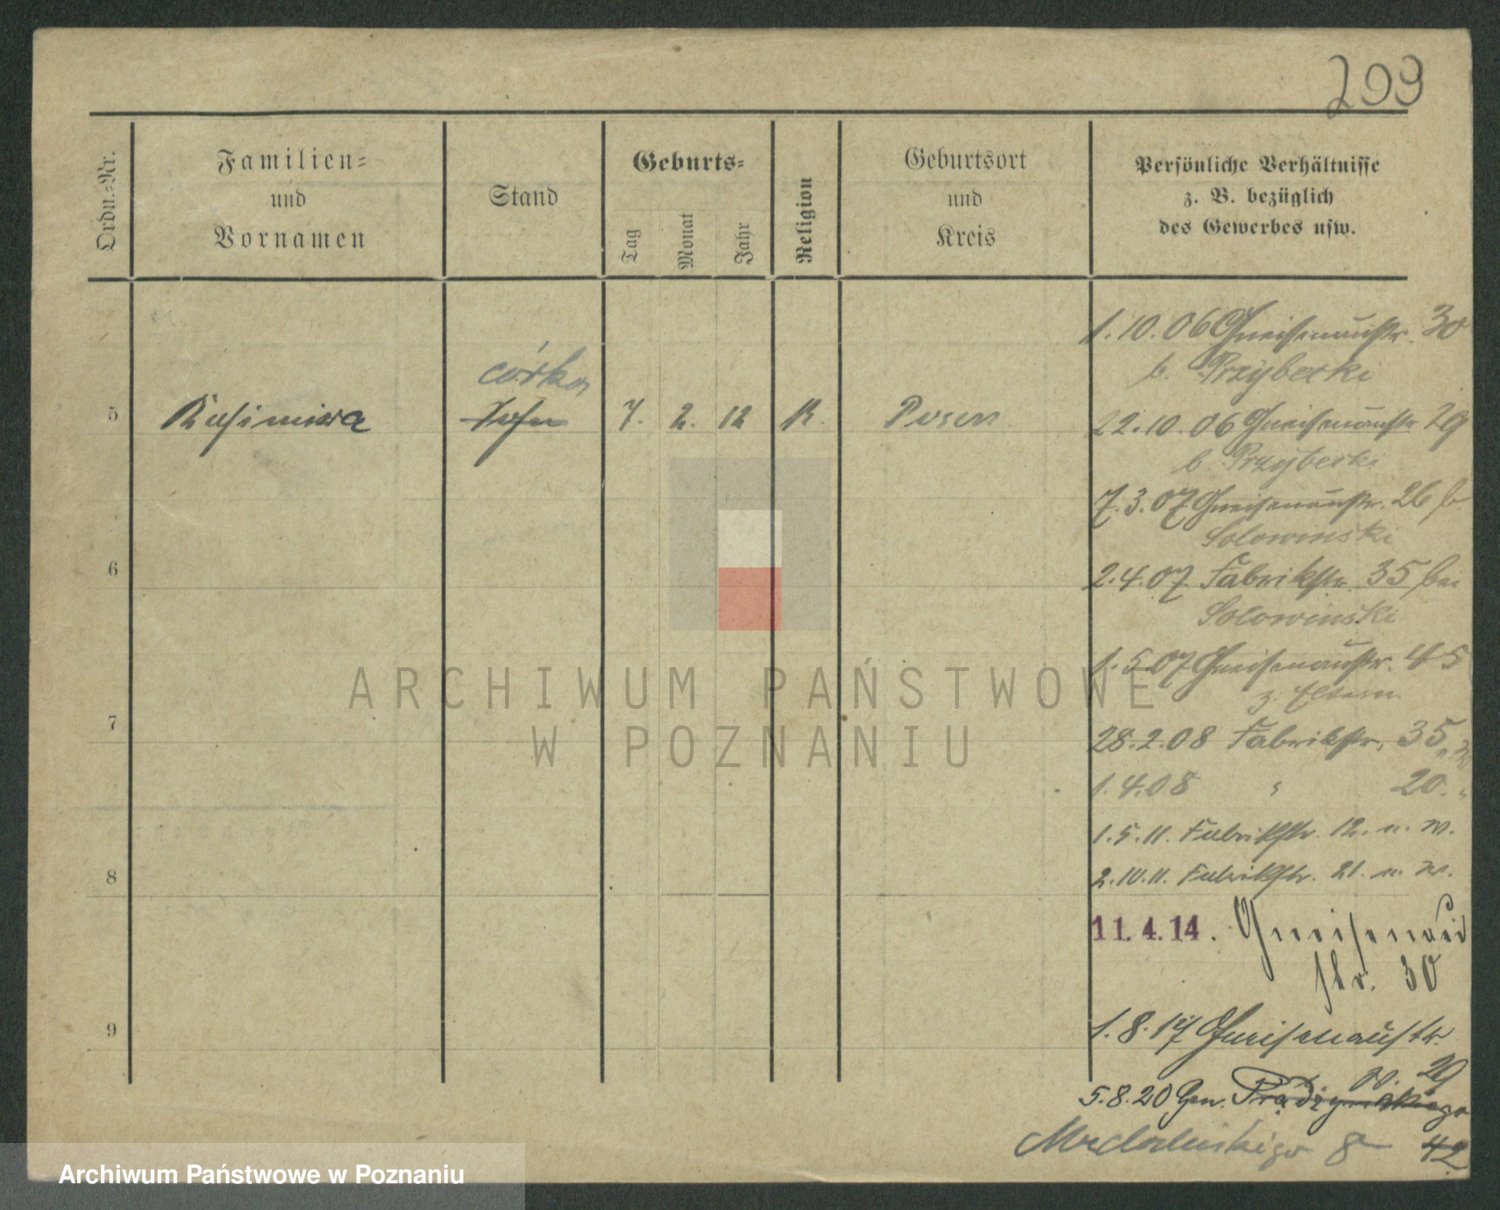 209
Ordn.-Nr.
Familien-
und
Vornamen
Stand
Geburts-
Tag
Monat
Jahr
Religion
Geburtsort
und
Kreis
Persönliche Verhältnisse
z. B. bezüglich
des Gewerbes usw.
1.10.06 Gneisenaustr. 30
b. Przyberki
córka
5 Kasimira 7. 2. 12 K. Posen
22.10.06 Gneisenaustr. 29
b Przyberki
7.3.07 Gneisenaustr. 26 b
Solowinski
6
2.4.07 Fabrikstr. 35 bei
Solowinski
1.5.07 Gneisenaustr. 45
z. Eltern
7
28.2.08 Fabrikstr. 35
1.4.08 " 20.
1.5.11. Fabrikstr. 12. n. W.
8
2.10.11. Fabrikstr. 21. n. W.
11.4.14. Gneisenau
str. 30
9
1.8.17 Gneisenaustr.
29
5.8.20 Gen. Prądzyńskiego
8 42
ARCHIWUM PAŃSTWOWE
W POZNANIU
Archiwum Państwowe w Poznaniu